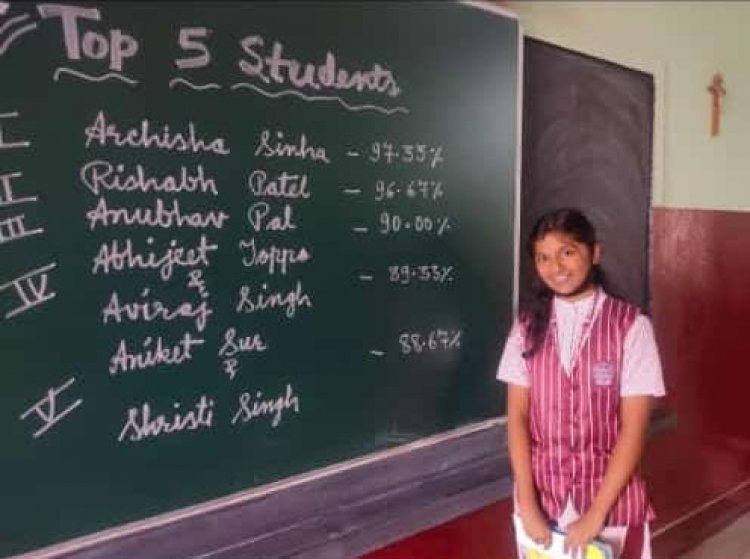 Top 5 Students
I Archisha Sinha - 97.33%
II Rishabh Patel - 96.67%
III Anubhav Pal - 90.00%
IV Abhijeet Toppo
& - 89.33%
Aviraj Singh
Aniket Sur - 88.67%
&
V Shristi Singh